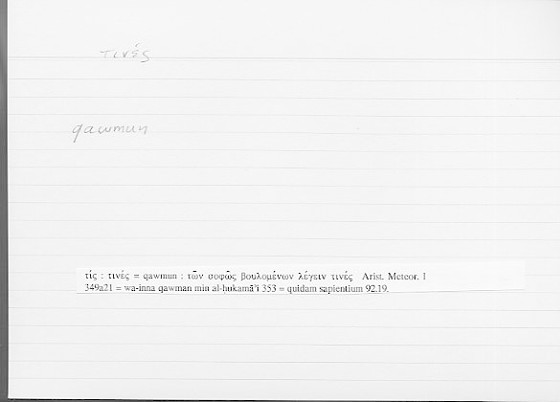 τινές
qawmun
τίς : τινές = qawmun : τῶν σοφῶς βουλομένων λέγειν τινές Arist. Meteor. I
349a21 = wa-inna qawman min al-ḥukamāʾi 353 = quidam sapientium 92.19.